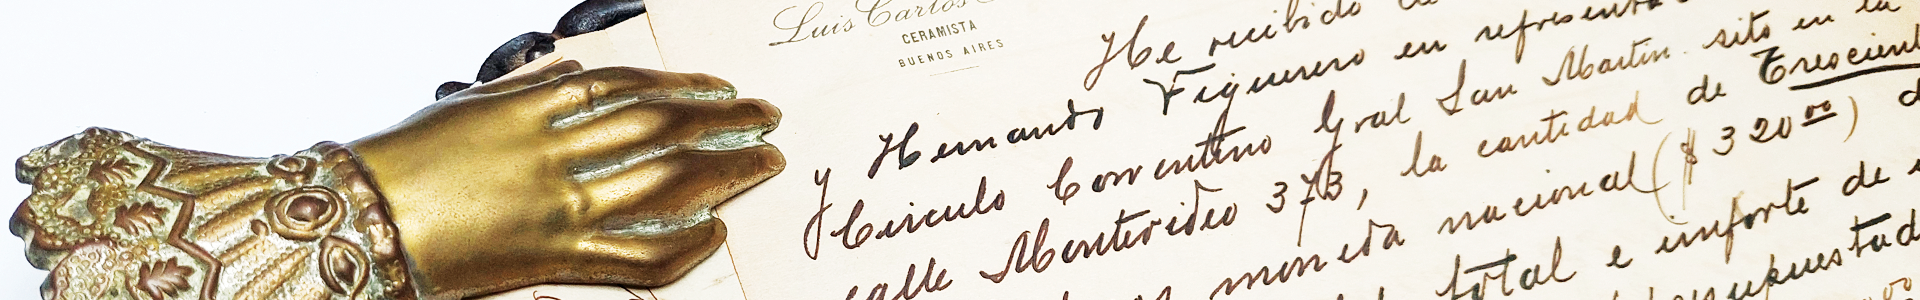 Luis Carlos
CERAMISTA
BUENOS AIRES
He recibido de
y Hernando Figuerero en represent
Circulo Correntino Gral San Martin sito en la
calle Montevideo 373, la cantidad de Trescient
moneda nacional ($ 320.00) d
total e importe de
supuestad